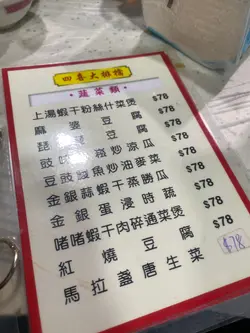 四喜大排檔
蔬菜類
上湯蝦干粉絲什菜煲 $78
麻婆豆腐 $78
琵琶豆腐 $78
豉味 炒涼瓜 $78
豆豉鯪魚炒油麥菜 $78
金銀蒜蝦干蒸勝瓜 $78
金銀蛋浸時蔬 $78
啫啫蝦干肉碎通菜煲 $78
紅燒豆腐 $78
馬拉盞唐生菜 $78